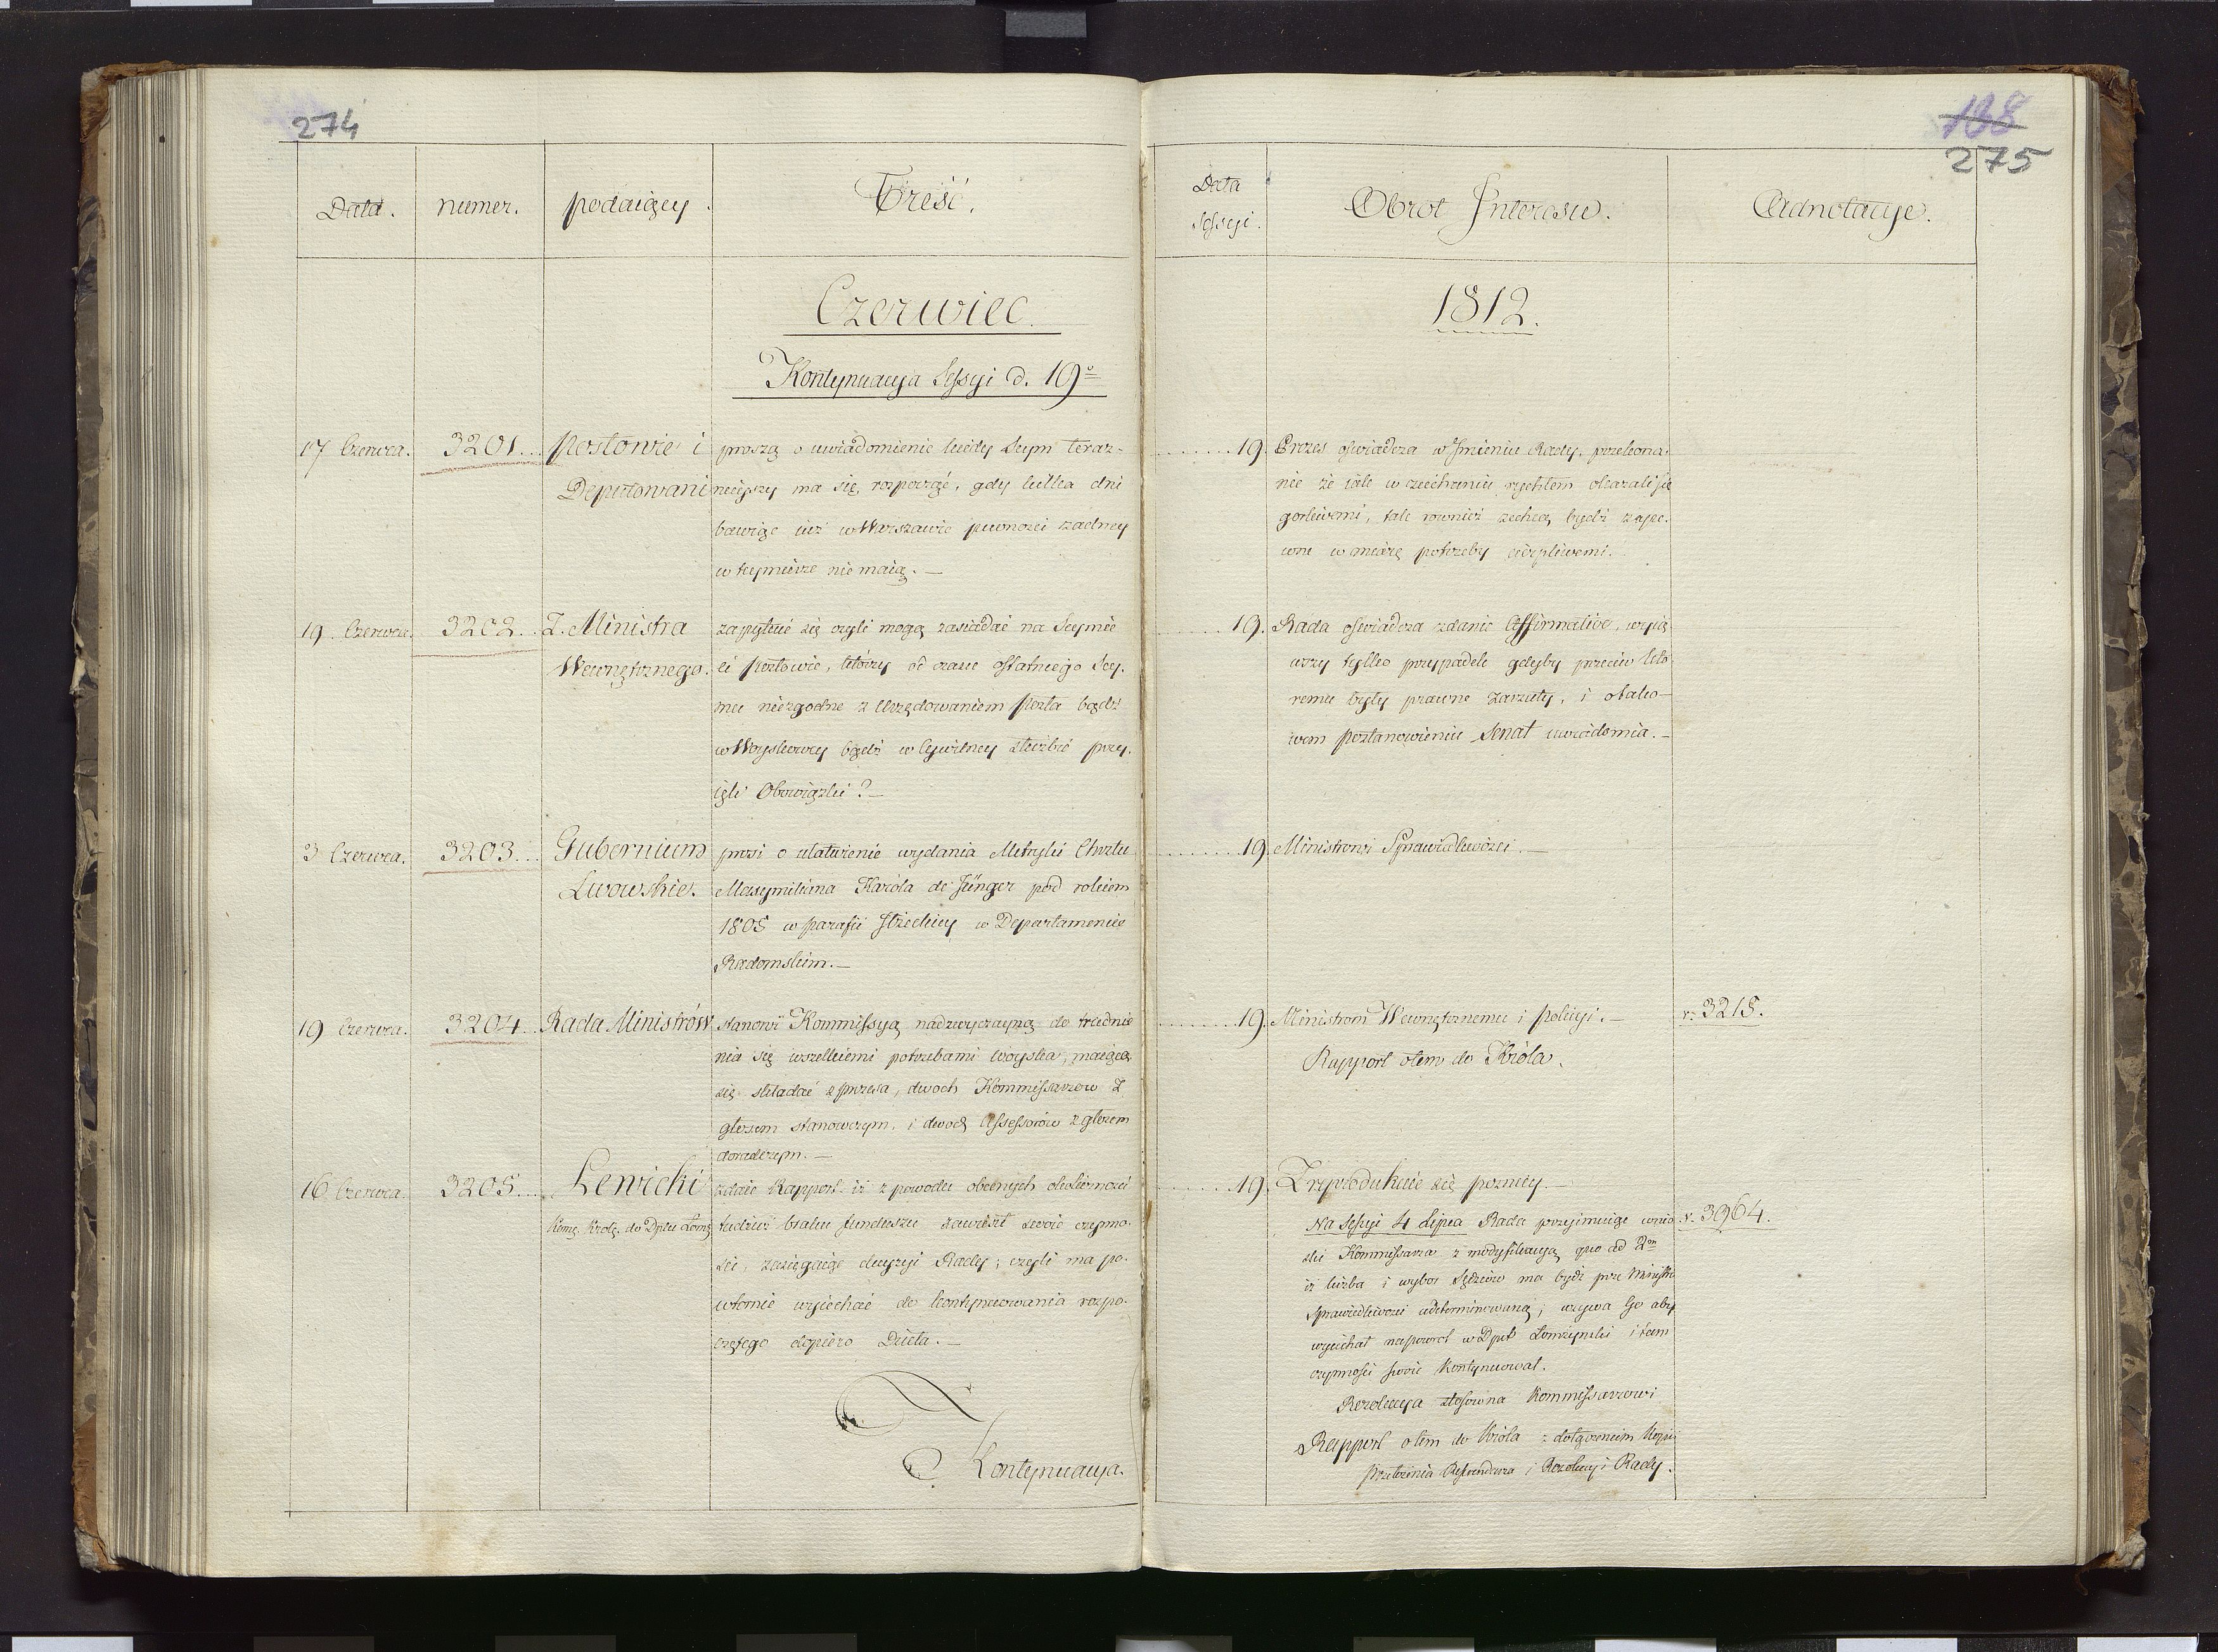 274
188
275
Data.
numer.
podaiący.
Treść.
Data Sessyi.
Obrot Interesu.
Adnotacye.
Czerwiec.
1812.
Kontynuacya Sessyi d. 19º
17 Czerwca. 3201... Posłowie i Deputowani
proszą o uwiadomienie kiedy Seym teraz-
nieyszy ma się rozpocząć, gdy kilka dni
bawiąc iuż w Warszawie pewności żadney
w tey mierze nie maią.—
19. Prezes oświadcza w Imieniu Rady, przekona-
nie że iak w ziechaniu rychłem okazali się
gorliwemi, tak rownież zechcą bydź zape-
wne w miarę potrzeby cierpliwemi.
19. Czerwca. 3202... Z. Ministra Wewnętrznego.
zapytuie się czyli mogą zasiadać na Seymie
ci Posłowie, którzy od czasu ostatniego Sey-
mu niezgodne z Urzędowaniem Posła bądź
w Woyskowey bądź w Cywilney służbie przy-
ięli Obowiązki?—
19. Rada oświadcza zdanie Affirmative, wyią-
wszy tylko przypadek gdyby przeciw któ-
remu były prawne zarzuty, i o tako-
wem postanowieniu Senat uwiadomia.—
3 Czerwca. 3203... Gubernium Lwowskie.
prosi o ułatwienie wydania Metryki Chrztu
Maxymiliana Karola de Jünger pod rokiem
1805 w parafii w Departamencie
Radomskim.—
19. Ministrowi Sprawiedliwości.—
19 Czerwca. 3204... Rada Ministrów
stanowi Kommissyą nadzwyczayną do trudnie-
nia się wszelkiemi potrzebami woyska, maiącą
się składać z prezesa, dwoch Kommissarzow z
głosem stanowczym, i dwoch Assessorów z głosem
doradczym.—
19. Ministrom Wewnętrznemu i Policyi.—
Rapport o tem do Króla.
v. 3215.
16 Czerwca. 3205... Lewicki
Koms. Krolg. do Dptu Łomż
zdaie Rapport iż z powodu obecnych okoliczności
tudzież braku funduszu zawiesił swoie czynno-
ści, zasięgaiąc decyzyi Rady; czyli ma po-
wtornie wyiechać do kontynuowania rozpo-
czętego dopiero Dzieła.—
19. Zrzyprodukuie się pozniey.—
Na Sessyi 4 Lipca Rada przyimuiąc wnio-
ski Kommissarza z modyfikacyą quo ad 2m
iż liczba i wybor Sędziow ma bydź prze Ministra
Sprawiedliwości determinowaną; wzywa Go aby
wyiechał napowrot w Dpt Łomżyński i tam
czynności swoie kontynuował.
Rezolucya stosowna Kommissarzowi
Rapport o tem do Króla z dołączeniem Kopii
Przełożenia Referendarza i Rezolucyi Rady.
v. 3964.
Kontynuacya.